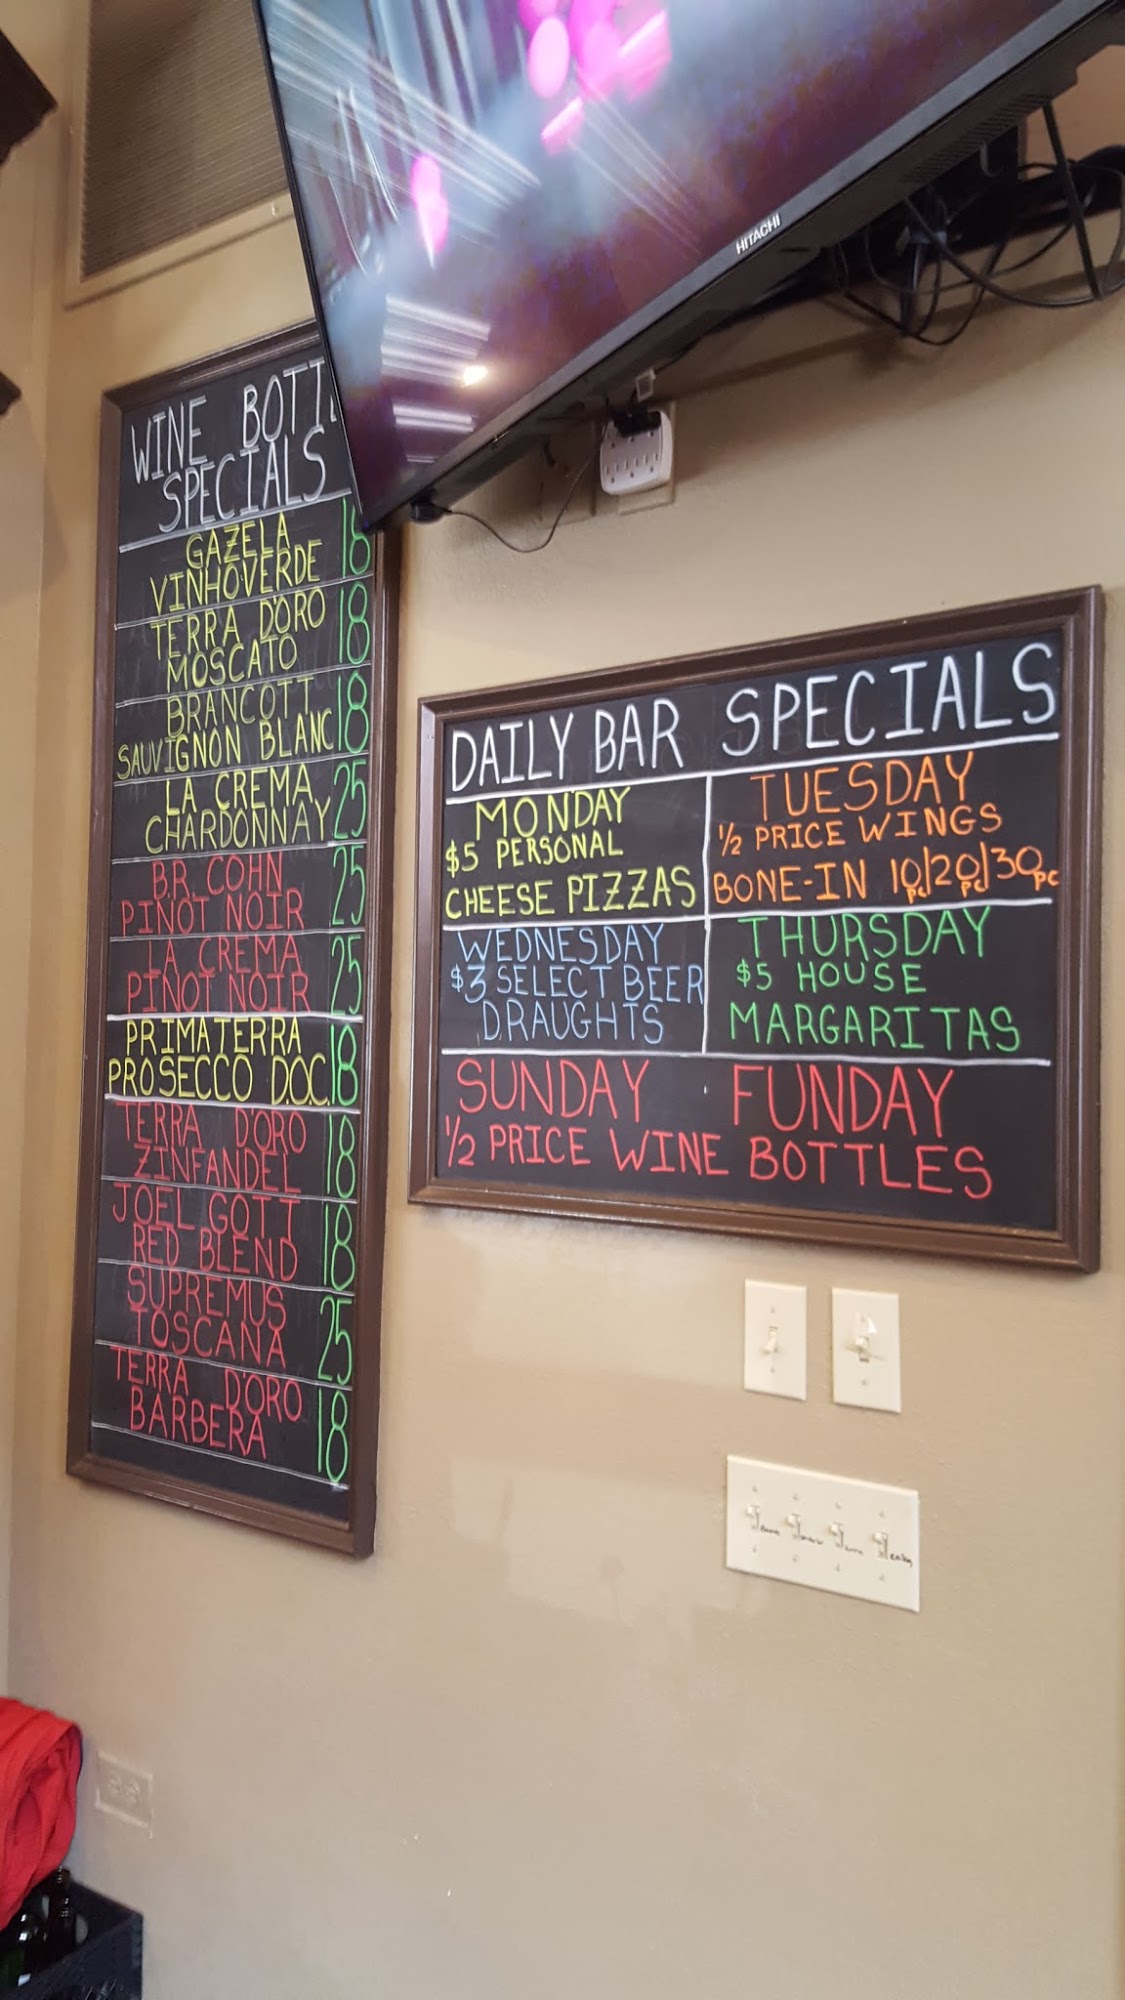 HITACHI
WINE BOTTL
SPECIALS
GAZELA
VINHOVERDE 18
TERRA D'ORO
MOSCATO 18
BRANCOTT
SAUVIGNON BLANC 18
LA CREMA
CHARDONNAY 25
B.R. COHN
PINOT NOIR 25
LA CREMA
PINOT NOIR 25
PRIMATERRA
PROSECCO D.O.C. 18
TERRA D'ORO
ZINFANDEL 18
JOEL GOTT
RED BLEND 18
SUPREMUS
TOSCANA 25
TERRA D'ORO
BARBERA 18
DAILY BAR SPECIALS
MONDAY
$5 PERSONAL
CHEESE PIZZAS
TUESDAY
1/2 PRICE WINGS
BONE-IN 10pc/20pc/30pc
WEDNESDAY
$3 SELECT BEER
DRAUGHTS
THURSDAY
$5 HOUSE
MARGARITAS
SUNDAY FUNDAY
1/2 PRICE WINE BOTTLES